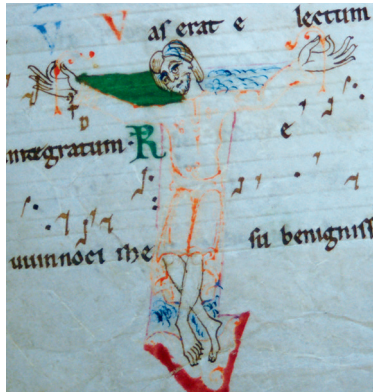 V as erat e lectum
integratum. R e
innoci ihe su benigniss